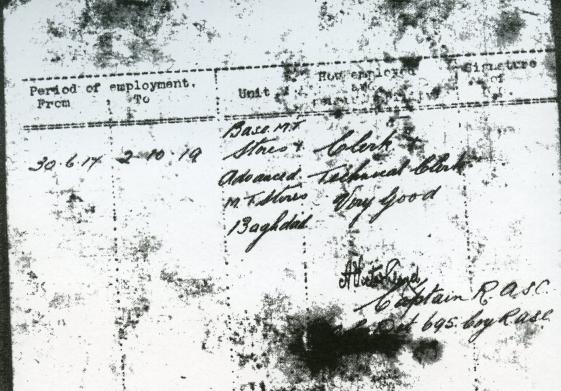 Period of employment. How employed Signature
From To Unit and of
30.6.17 2-10-19 Base. M.T
Stores & Clerk &
Advanced Technical Clerk
M.T Stores Very Good
Baghdad
Captain R.A.S.C.
695. Coy R.A.S.C.